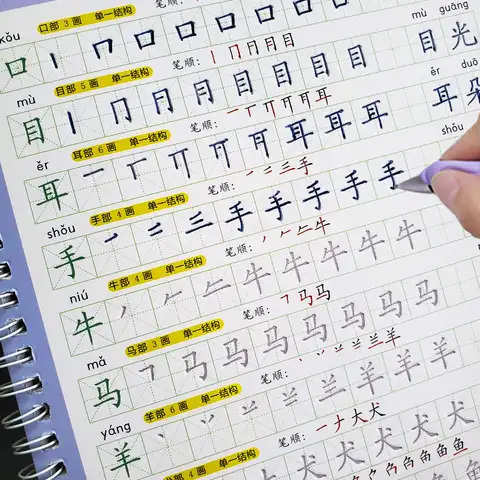 kǒu 口部 3 画 单一结构
口 丨 冂 口 口 口 口 口
mù 目部 5 画 单一结构 笔顺: 丨 冂 冃 月 目 mù guāng
目 丨 冂 冃 月 目 目 目 目 目 光
ěr 耳部 6 画 单一结构 笔顺: 耳 ěr duǒ
耳 一 丅 丌 耳 耳 耳 耳 朵
shǒu 手部 4 画 单一结构 笔顺: 一 二 三 手 shǒu
手 一 二 三 手 手 手 手 手
niú 牛部 4 画 单一结构 笔顺: 丿 𠂉 牛 牛
牛 丿 𠂉 牛 牛 牛 牛 牛 牛
mǎ 马部 3 画 单一结构 笔顺: ㇕ 马 马
马 ㇕ 马 马 马 马 马 马
yáng 羊部 6 画 单一结构 笔顺: 羊
羊 丶 丷 羊 羊 羊 羊
4 画 单一结构 笔顺: 一 ナ 大 犬
犬 犬 犬 犬
鱼 鱼